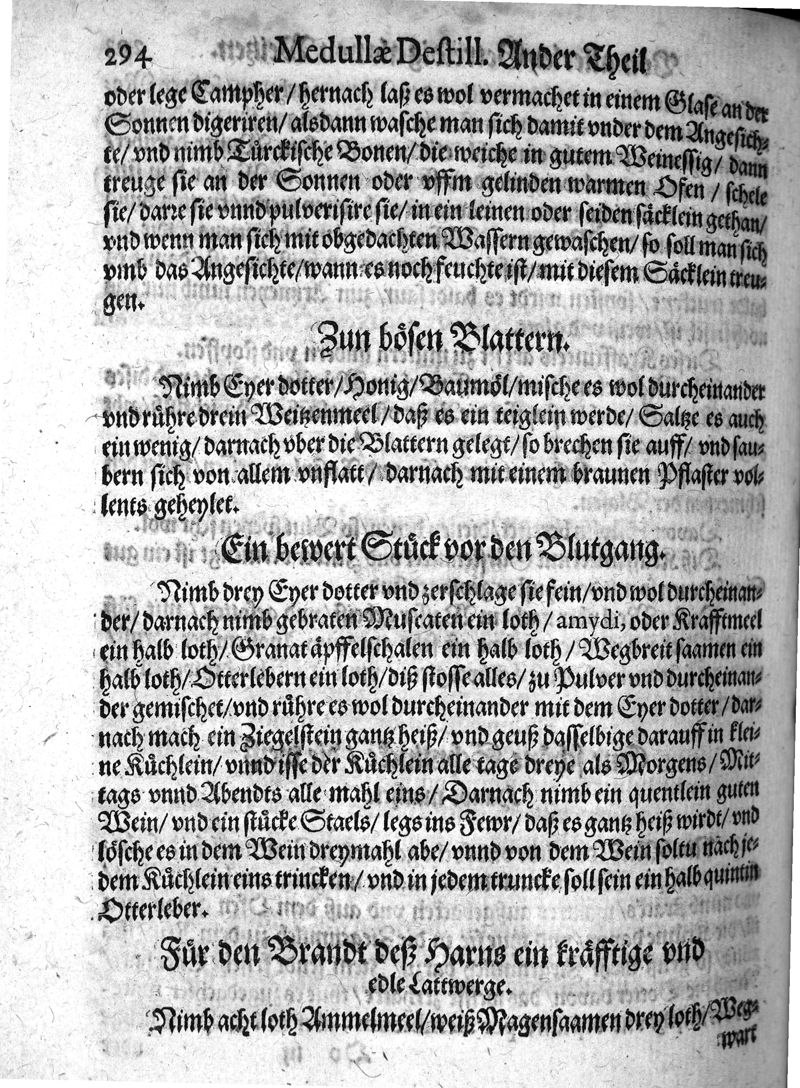 294 Medullæ Destill. Ander Theil
oder lege Campher/ hernach laß es wol vermachet in einem Glase an der
Sonnen digeriren/ alsdann wasche man sich damit vnder dem Angesich-
te/ vnd nimb Türckische Bonen/ die weiche in gutem Weinessig/ dann
treuge sie an der Sonnen oder vffm gelinden warmen Ofen/ schele
sie/ darre sie vnnd pulverisire sie/ in ein leinen oder seiden säcklein gethan/
vnd wenn man sich mit obgedachten Wassern gewaschen/ so soll man sich
vmb das Angesichte/ wann es noch feuchte ist/ mit diesem Säcklein treu-
gen.
Zun bösen Blattern.
Nimb Eyer dotter/ Honig/ Baumöl/ mische es wol durcheinander
vnd rühre drein Weitzenmeel/ daß es ein teiglein werde/ Saltze es auch
ein wenig/ darnach vber die Blattern gelegt/ so brechen sie auff/ vnd sau-
bern sich von allem vnflatt/ darnach mit einem braunen Pflaster vol-
lents geheylet.
Ein bewert Stück vor den Blutgang.
Nimb drey Eyer dotter vnd zerschlage sie fein/ vnd wol durcheinan-
der/ darnach nimb gebraten Muscaten ein loth/ amydi, oder Krafftmeel
ein halb loth/ Granatäpffelschalen ein halb loth/ Wegbreit saamen ein
halb loth/ Otterlebern ein loth/ diß stosse alles/ zu Pulver vnd durcheinan-
der gemischet/ vnd rühre es wol durcheinander mit dem Eyer dotter/ dar-
nach mach ein Ziegelstein gantz heiß/ vnd geuß dasselbige darauff in klei-
ne Küchlein/ vnnd isse der Küchlein alle tags dreye als Morgens/ Mit-
tags vnnd Abendts alle mahl eins/ Darnach nimb ein quentlein guten
Wein/ vnd ein stücke Staels/ legs ins Fewr/ daß es gantz heiß wirdt/ vnd
lösche es in dem Wein dreymahl abe/ vnnd von dem Wein soltu nach je-
dem Küchlein eins trincken/ vnd in jedem truncke soll sein ein halb quintin
Otterleber.
Für den Brandt deß Harns ein kräfftige vnd
edle Lattwerge.
Nimb acht loth Ammelmeel/ weiß Magensaamen drey loth/ Weg-
wart